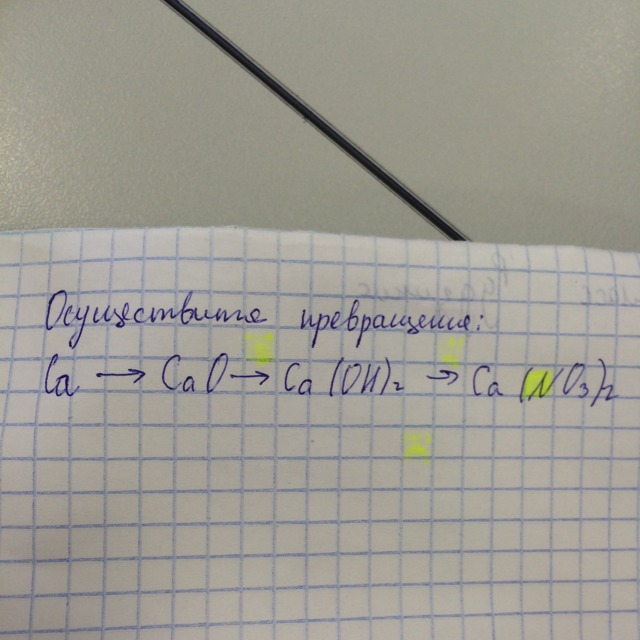 Осуществите превращения:
Ca → CaO → Ca(OH)₂ → Ca(NO₃)₂